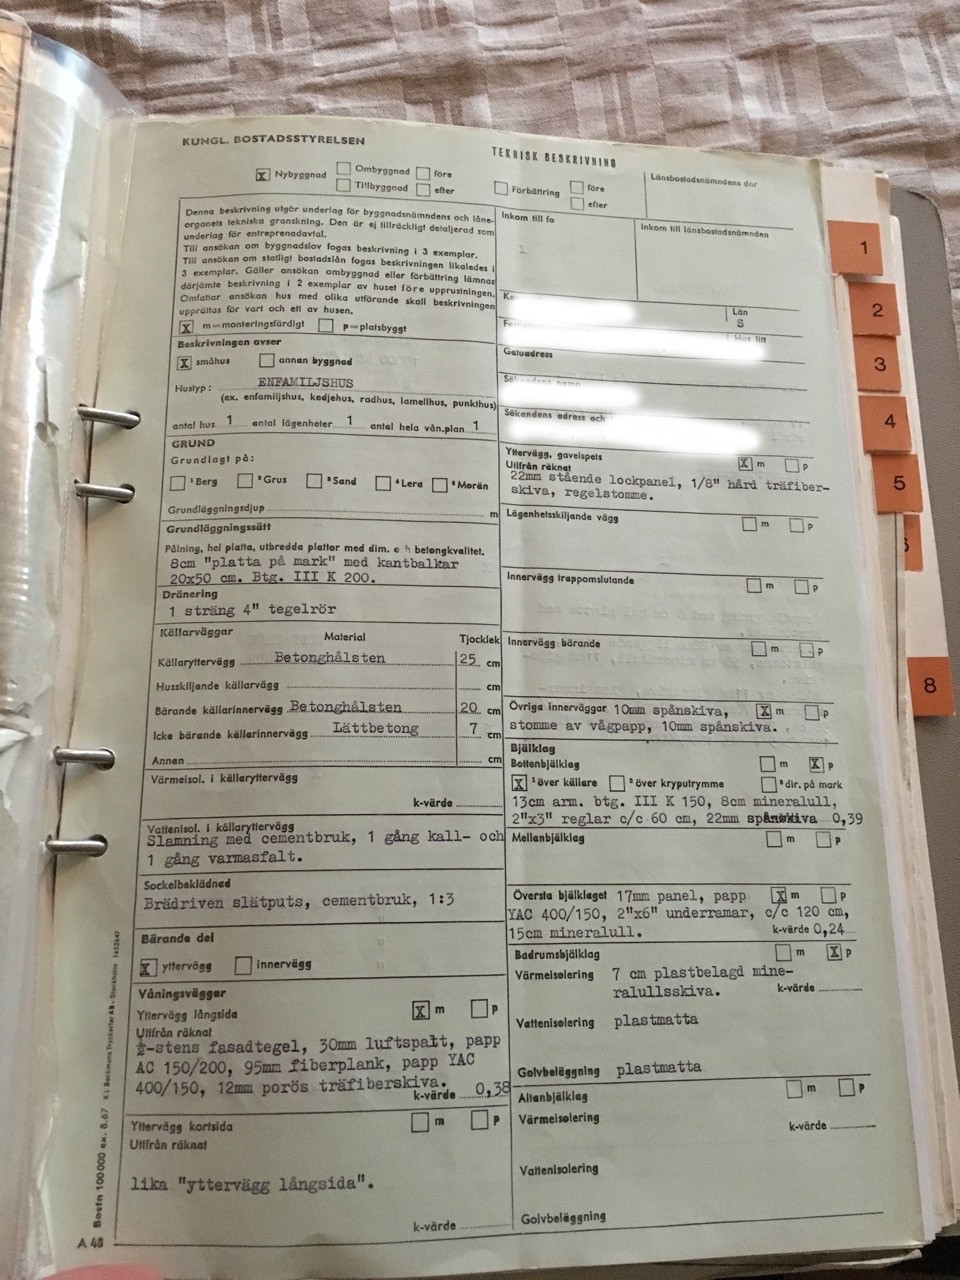 KUNGL. BOSTADSSTYRELSEN
TEKNISK BESKRIVNING
X Nybyggnad
Ombyggnad
Tillbyggnad
före
efter
Förbättring
före
efter
Länsbostadsnämndens dnr
Denna beskrivning utgör underlag för byggnadsnämndens och låne-
organets tekniska granskning. Den är ej tillräckligt detaljerad som
underlag för entreprenadavtal.
Till ansökan om byggnadslov fogas beskrivning i 3 exemplar.
Till ansökan om statligt bostadslån fogas beskrivningen likaledes i
3 exemplar. Gäller ansökan ombyggnad eller förbättring lämnas
därjämte beskrivning i 2 exemplar av huset före upprustningen.
Omfattar ansökan hus med olika utförande skall beskrivningen
upprättas för vart och ett av husen.
X m=monteringsfärdigt p=platsbyggt
Beskrivningen avser
X småhus annan byggnad
Hustyp: ENFAMILJSHUS
(ex. enfamiljshus, kedjehus, radhus, lamellhus, punkthus)
antal hus 1 antal lägenheter 1 antal hela vån.plan 1
GRUND
Grundlagt på:
1 Berg 2 Grus 3 Sand 4 Lera 5 Morän
Grundläggningsdjup m
Grundläggningssätt
Pålning, hel platta, utbredda plattor med dim. o h betongkvalitet.
8cm "platta på mark" med kantbalkar
20x50 cm. Btg. III K 200.
Dränering
1 sträng 4" tegelrör
Källarväggar Material Tjocklek
Källaryttervägg Betonghålsten 25 cm
Husskiljande källarvägg cm
Bärande källarinnervägg Betonghålsten 20 cm
Icke bärande källarinnervägg Lättbetong 7 cm
Annan cm
Värmeisol. i källaryttervägg
k-värde
Vattenisol. i källaryttervägg
Slamning med cementbruk, 1 gång kall- och
1 gång varmasfalt.
Sockelbeklädnad
Brädriven slätputs, cementbruk, 1:3
Bärande del
X yttervägg innervägg
Våningsväggar
Yttervägg långsida X m p
Utifrån räknat
½-stens fasadtegel, 30mm luftspalt, papp
AC 150/200, 95mm fiberplank, papp YAC
400/150, 12mm porös träfiberskiva.
k-värde 0,38
Yttervägg kortsida m p
Utifrån räknat
lika "yttervägg långsida".
k-värde
A 48
Bostn 100000 ex. 8.67 K L Beckmans Tryckerier AB - Stockholm 1652647
Inkom till fo
Inkom till länsbostadsnämnden
Län
S
Hus litt
Gatuadress
Sökandens namn
Sökandens adress och
Yttervägg, gavelspets X m p
Utifrån räknat
22mm stående lockpanel, 1/8" hård träfiber-
skiva, regelstomme.
Lägenhetsskiljande vägg m p
Innervägg trappomslutande m p
Innervägg bärande m p
Övriga innerväggar 10mm spånskiva, X m p
stomme av vågpapp, 10mm spånskiva.
Bjälklag
Bottenbjälklag m X p
X 1 över källare 2 över kryputrymme 3 dir. på mark
13cm arm. btg. III K 150, 8cm mineralull,
2"x3" reglar c/c 60 cm, 22mm spånskiva 0,39
Mellanbjälklag m p
Översta bjälklaget 17mm panel, papp X m p
YAC 400/150, 2"x6" underramar, c/c 120 cm,
15cm mineralull. k-värde 0,24
Badrumsbjälklag m X p
Värmeisolering 7 cm plastbelagd mine-
ralullsskiva. k-värde
Vattenisolering plastmatta
Golvbeläggning plastmatta
Altanbjälklag m p
Värmeisolering
k-värde
Vattenisolering
Golvbeläggning
1
2
3
4
5
8